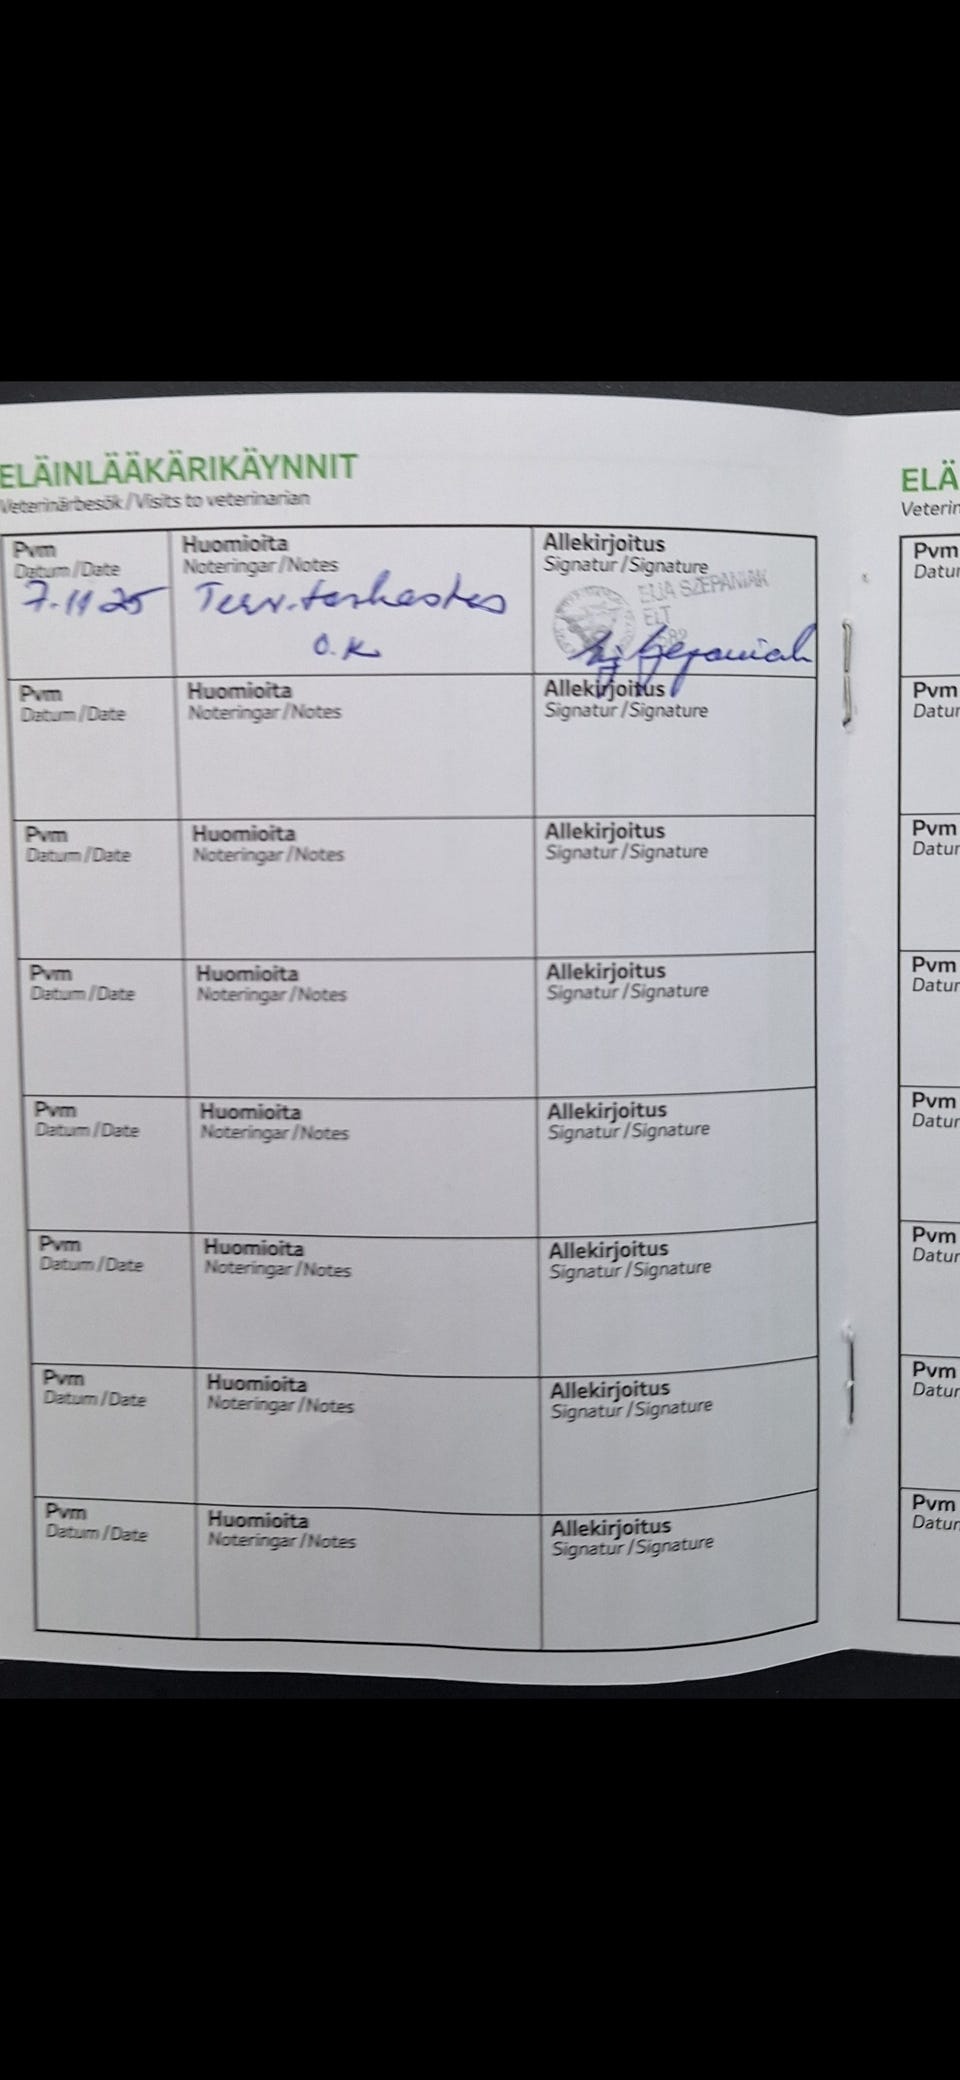 ELÄINLÄÄKÄRIKÄYNNIT
Veterinärbesök / Visits to veterinarian
Pvm Huomioita Allekirjoitus
Datum / Date Noteringar / Notes Signatur / Signature
7.11 25 Terv.tarkastus ELJA SZEPANIAK
ELT
O.K
Pvm Huomioita Allekirjoitus
Datum / Date Noteringar / Notes Signatur / Signature
Pvm Huomioita Allekirjoitus
Datum / Date Noteringar / Notes Signatur / Signature
Pvm Huomioita Allekirjoitus
Datum / Date Noteringar / Notes Signatur / Signature
Pvm Huomioita Allekirjoitus
Datum / Date Noteringar / Notes Signatur / Signature
Pvm Huomioita Allekirjoitus
Datum / Date Noteringar / Notes Signatur / Signature
Pvm Huomioita Allekirjoitus
Datum / Date Noteringar / Notes Signatur / Signature
Pvm Huomioita Allekirjoitus
Datum / Date Noteringar / Notes Signatur / Signature
ELÄ
Veterin
Pvm
Datum
Pvm
Datum
Pvm
Datum
Pvm
Datum
Pvm
Datum
Pvm
Datum
Pvm
Datum
Pvm
Datum